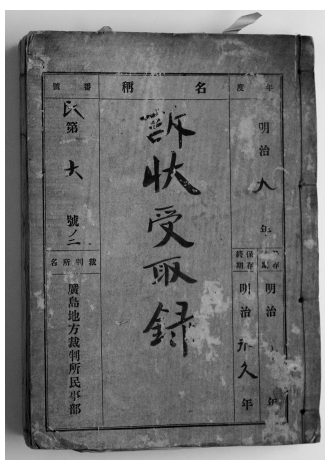 年度
明治九年
明治 年
保存終期
明治永久年
名稱
訴状受取録
番號
民第 號ノ二
裁判所名
廣島地方裁判所民事部